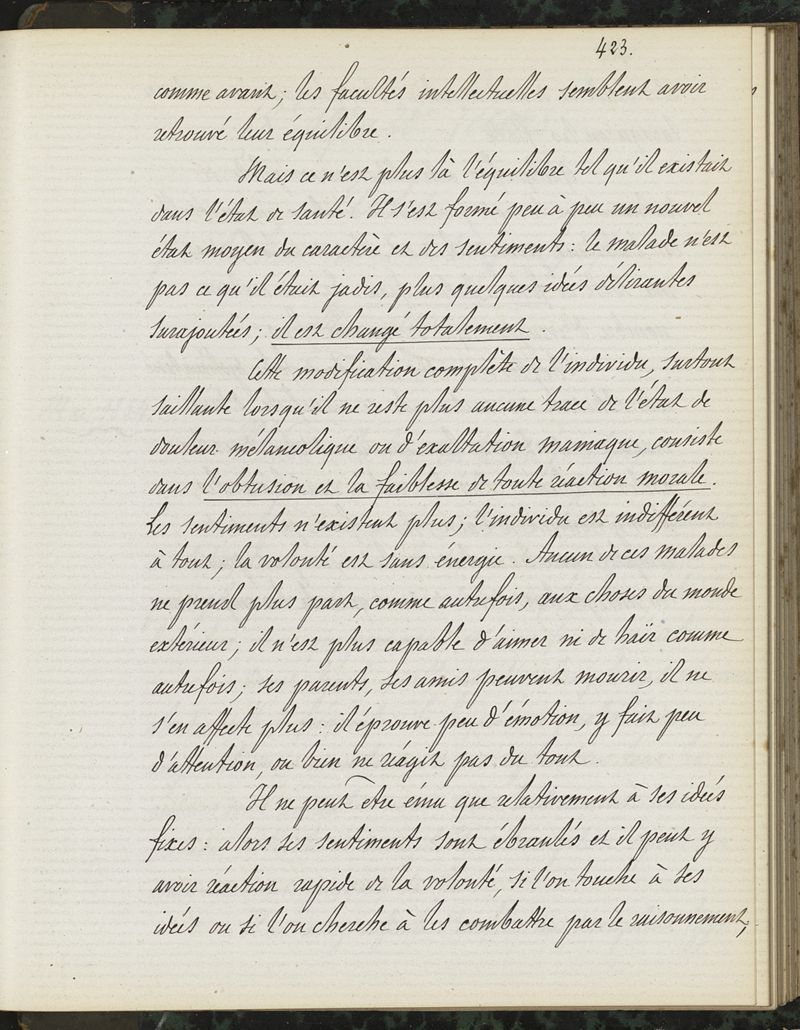 423.
comme avant; les facultés intellectuelles semblent avoir
retrouvé leur équilibre.
Mais ce n'est plus là l'équilibre tel qu'il existait
dans l'état de santé. Il s'est formé peu à peu un nouvel
état moyen du caractère et des sentiments: le malade n'est
pas ce qu'il était jadis, plus quelques idées délirantes
surajoutées; il est changé totalement.
Cette modification complète de l'individu, surtout
saillante lorsqu'il ne reste plus aucune trace de l'état de
douleur mélancolique ou d'exaltation maniaque, consiste
dans l'obtusion et la faiblesse de toute réaction morale.
Les sentiments n'existent plus; l'individu est indifférent
à tout; la volonté est sans énergie. Aucun de ces malades
ne prend plus part, comme autrefois, aux choses du monde
extérieur; il n'est plus capable d'aimer ni de haïr comme
autrefois; ses parents, ses amis peuvent mourir, il ne
s'en affecte plus: il éprouve peu d'émotion, y fait peu
d'attention, ou bien ne réagit pas du tout.
Il ne peut être ému que relativement à ses idées
fixes: alors ses sentiments sont ébranlés et il peut y
avoir réaction rapide de la volonté, si l'on touche à ses
idées ou si l'on cherche à les combattre par le raisonnement;